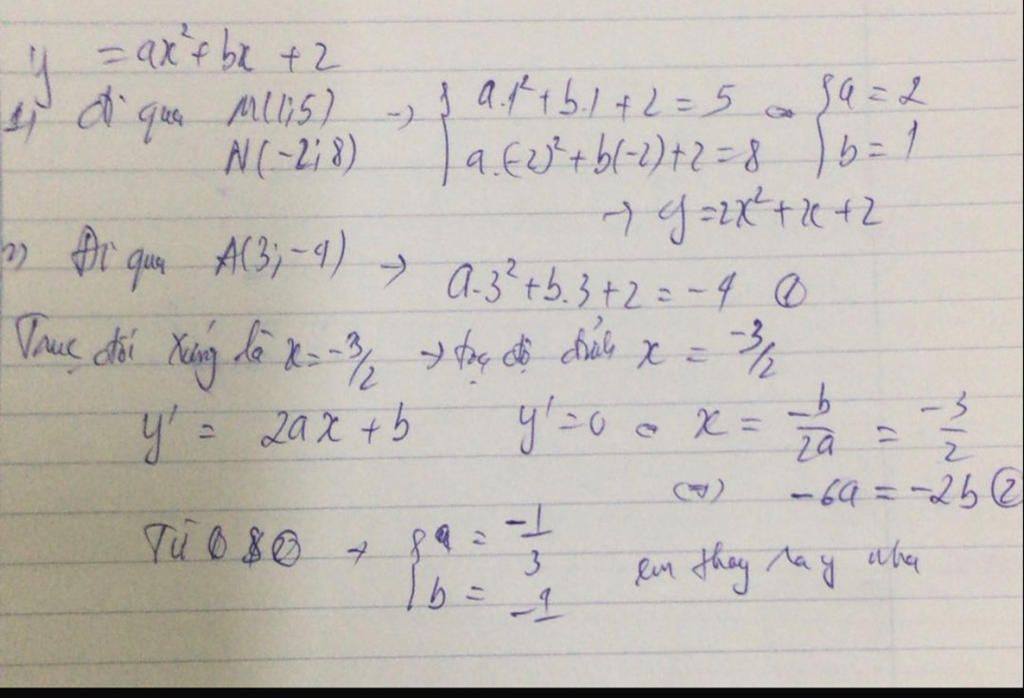 y = ax² + bx + 2
1) Đi qua M(1;5) → { a.1² + b.1 + 2 = 5 ⇔ { a = 2
N(-2;8) a.(-2)² + b(-2) + 2 = 8 b = 1
→ y = 2x² + x + 2
2) Đi qua A(3;-4) → a.3² + b.3 + 2 = -4 ①
Trục đối xứng là x = -3/2 → tọa độ đỉnh x = -3/2
y' = 2ax + b y' = 0 ⇔ x = -b/2a = -3/2
⇔ -6a = -2b ②
Từ ① & ② → { a = -1/3
b = -1 em thay ra y nha